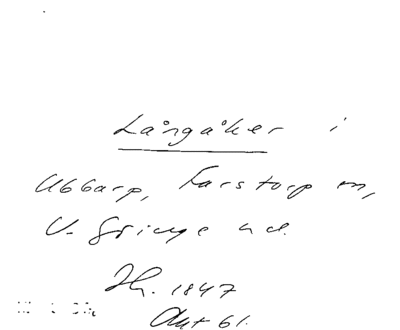 Långåker i
Ubbarp, Farstorp sn,
V. Göinge hd.
Jh. 1847
Akt 61.